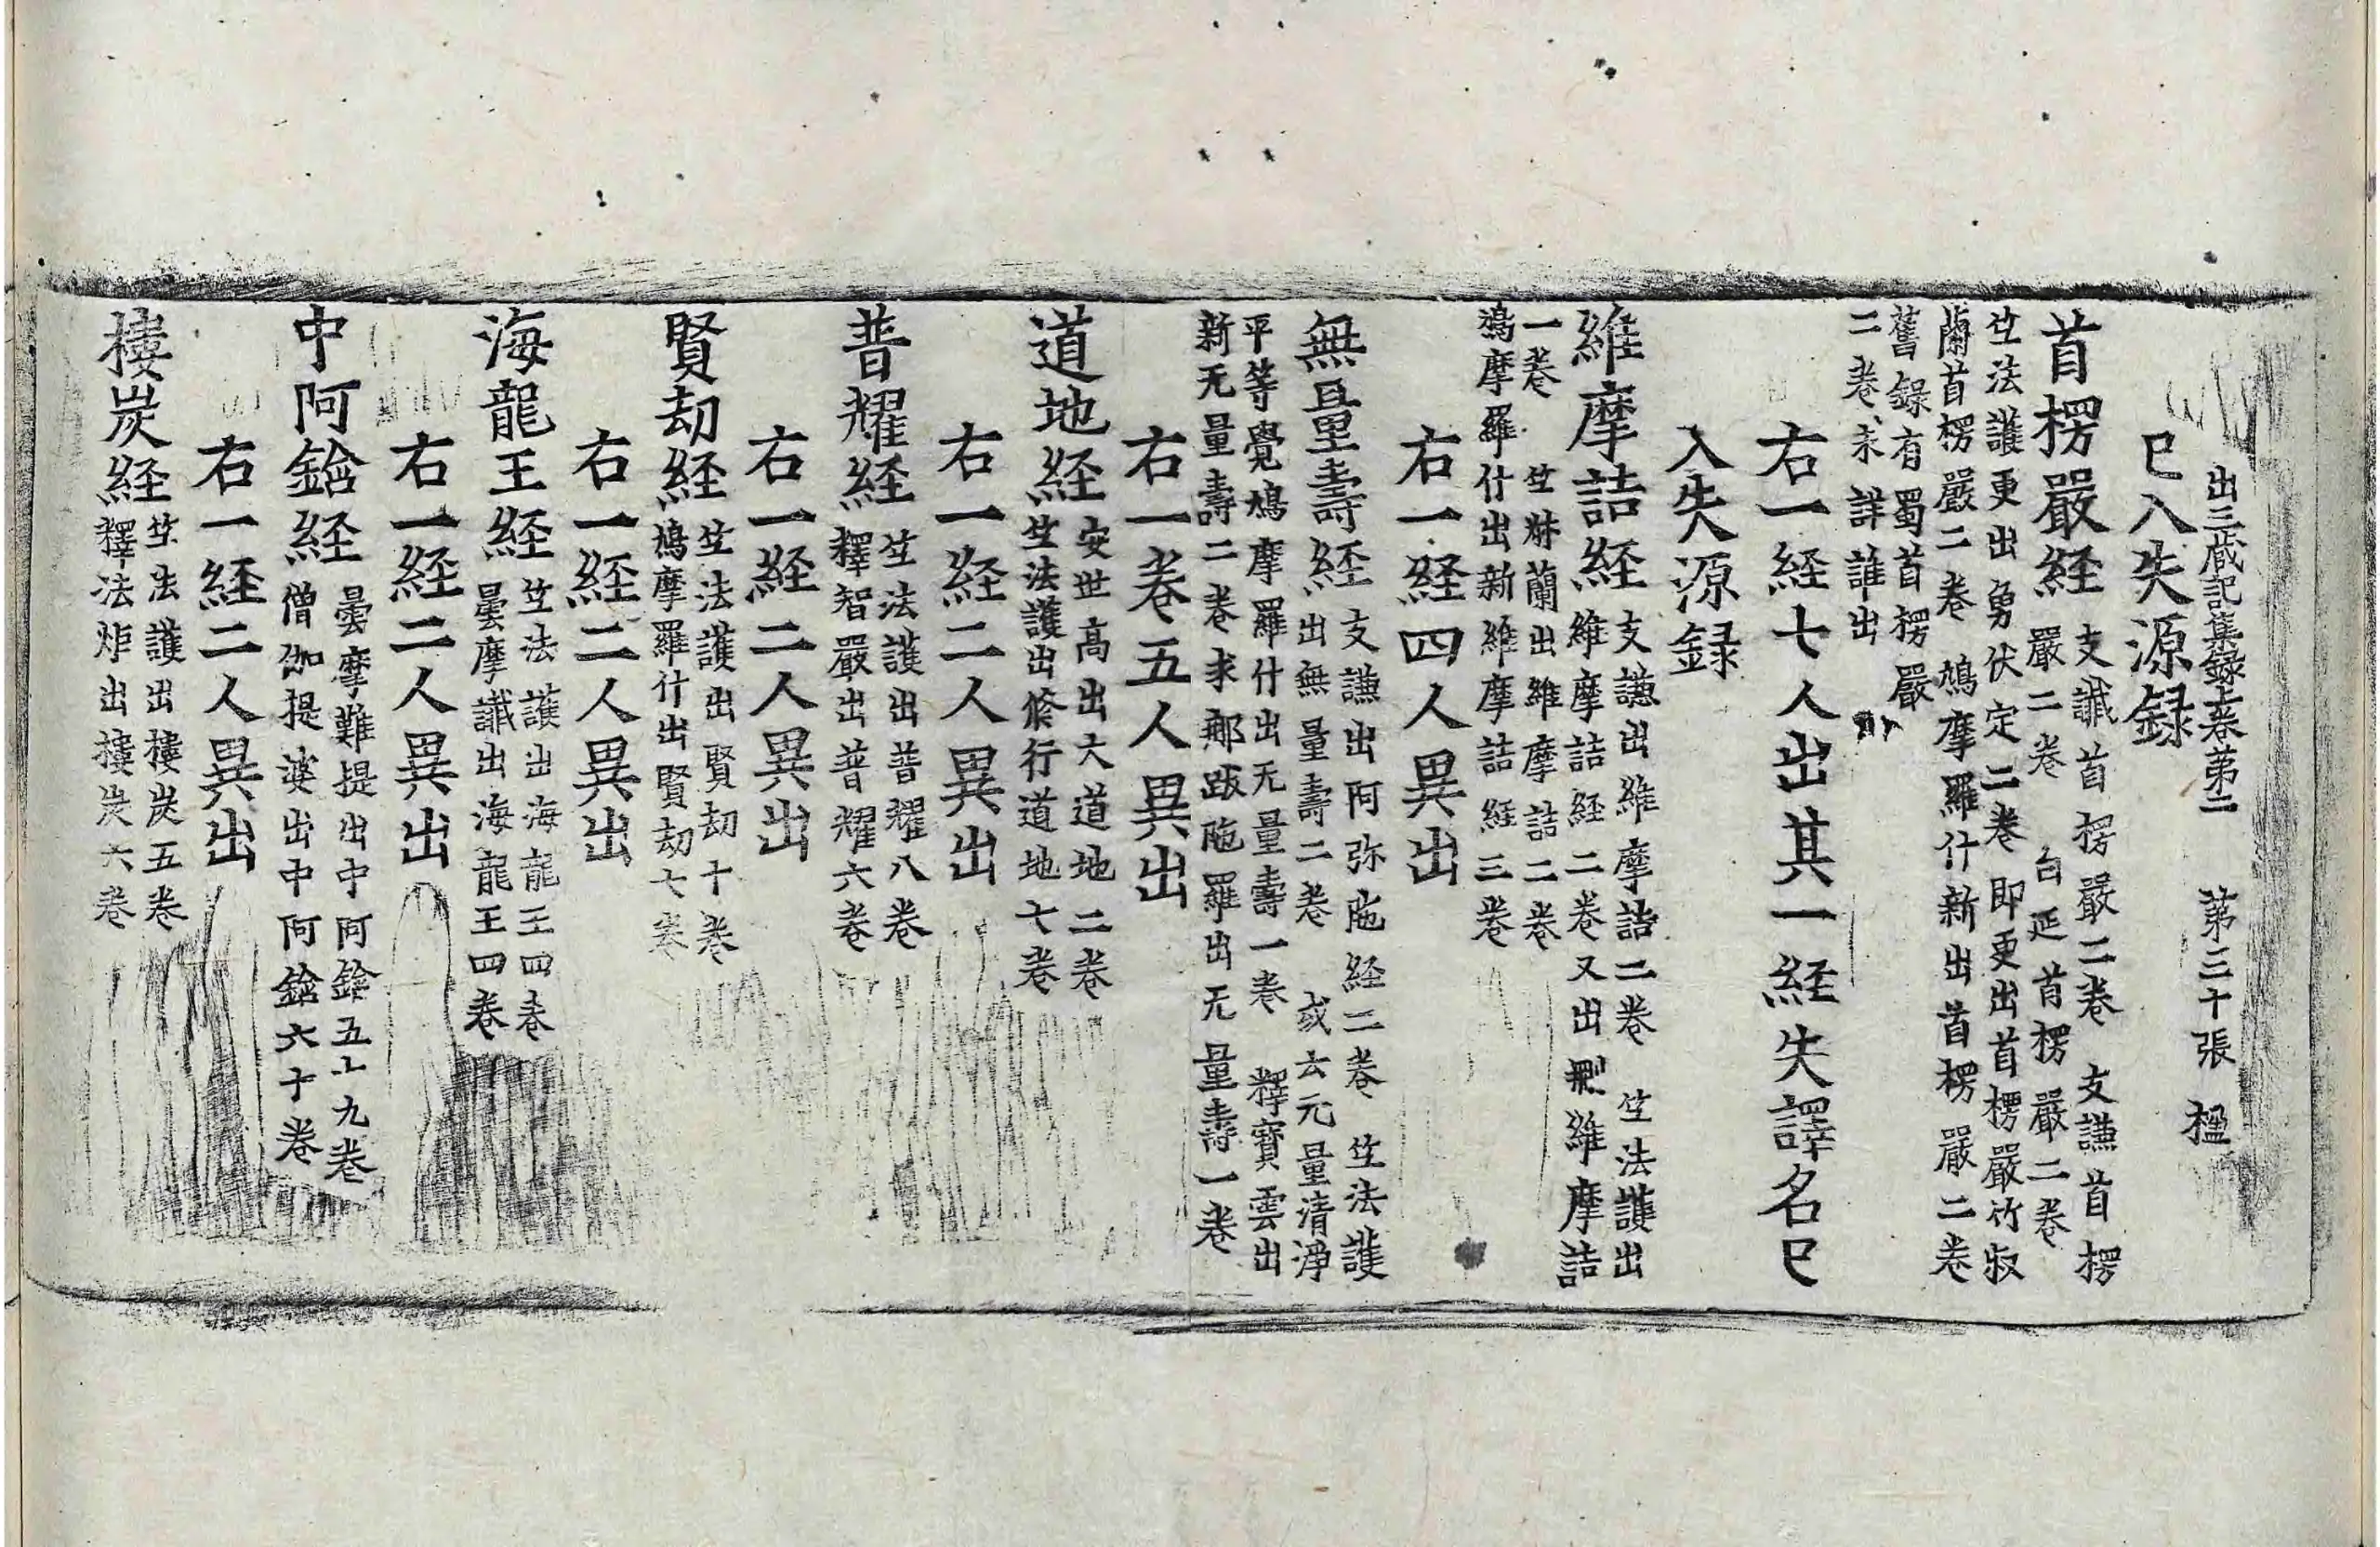 出三藏記集録上卷第二 第三十張 楹
巳入失源録
首楞嚴経
支讖首楞嚴二卷 支謙首楞
嚴二卷 白延首楞嚴二卷
竺法護更出勇伏定二卷即更出首楞嚴竹叔
蘭首楞嚴二卷 鳩摩羅什新出首楞嚴二卷
舊録有蜀首楞嚴
二卷未詳誰出
右一経七人出其一経失譯名巳
入失源録
維摩詰経
支謙出維摩詰二卷 竺法護出
維摩詰経二卷又出刪維摩詰
一卷 竺叔蘭出維摩詰二卷
鳩摩羅什出新維摩詰経三卷
右一経四人異出
無量壽経
支謙出阿弥陁経二卷 竺法護
出無量壽二卷 或云无量清淨
平等覺鳩摩羅什出无量壽一卷 釋寶雲出
新无量壽二卷求那跋陁羅出无量壽一卷
右一卷五人異出
道地経
安世高出大道地二卷
竺法護出脩行道地七卷
右一経二人異出
普耀経
竺法護出普耀八卷
釋智嚴出普耀六卷
右一経二人異出
賢劫経
竺法護出賢劫十卷
鳩摩羅什出賢劫七卷
右一経二人異出
海龍王経
竺法護出海龍王四卷
曇摩讖出海龍王四卷
右一経二人異出
中阿鋡経
曇摩難提出中阿鋡五十九卷
僧伽提婆出中阿鋡六十卷
右一経二人異出
樓炭経
竺法護出樓炭五卷
釋法炬出樓炭六卷